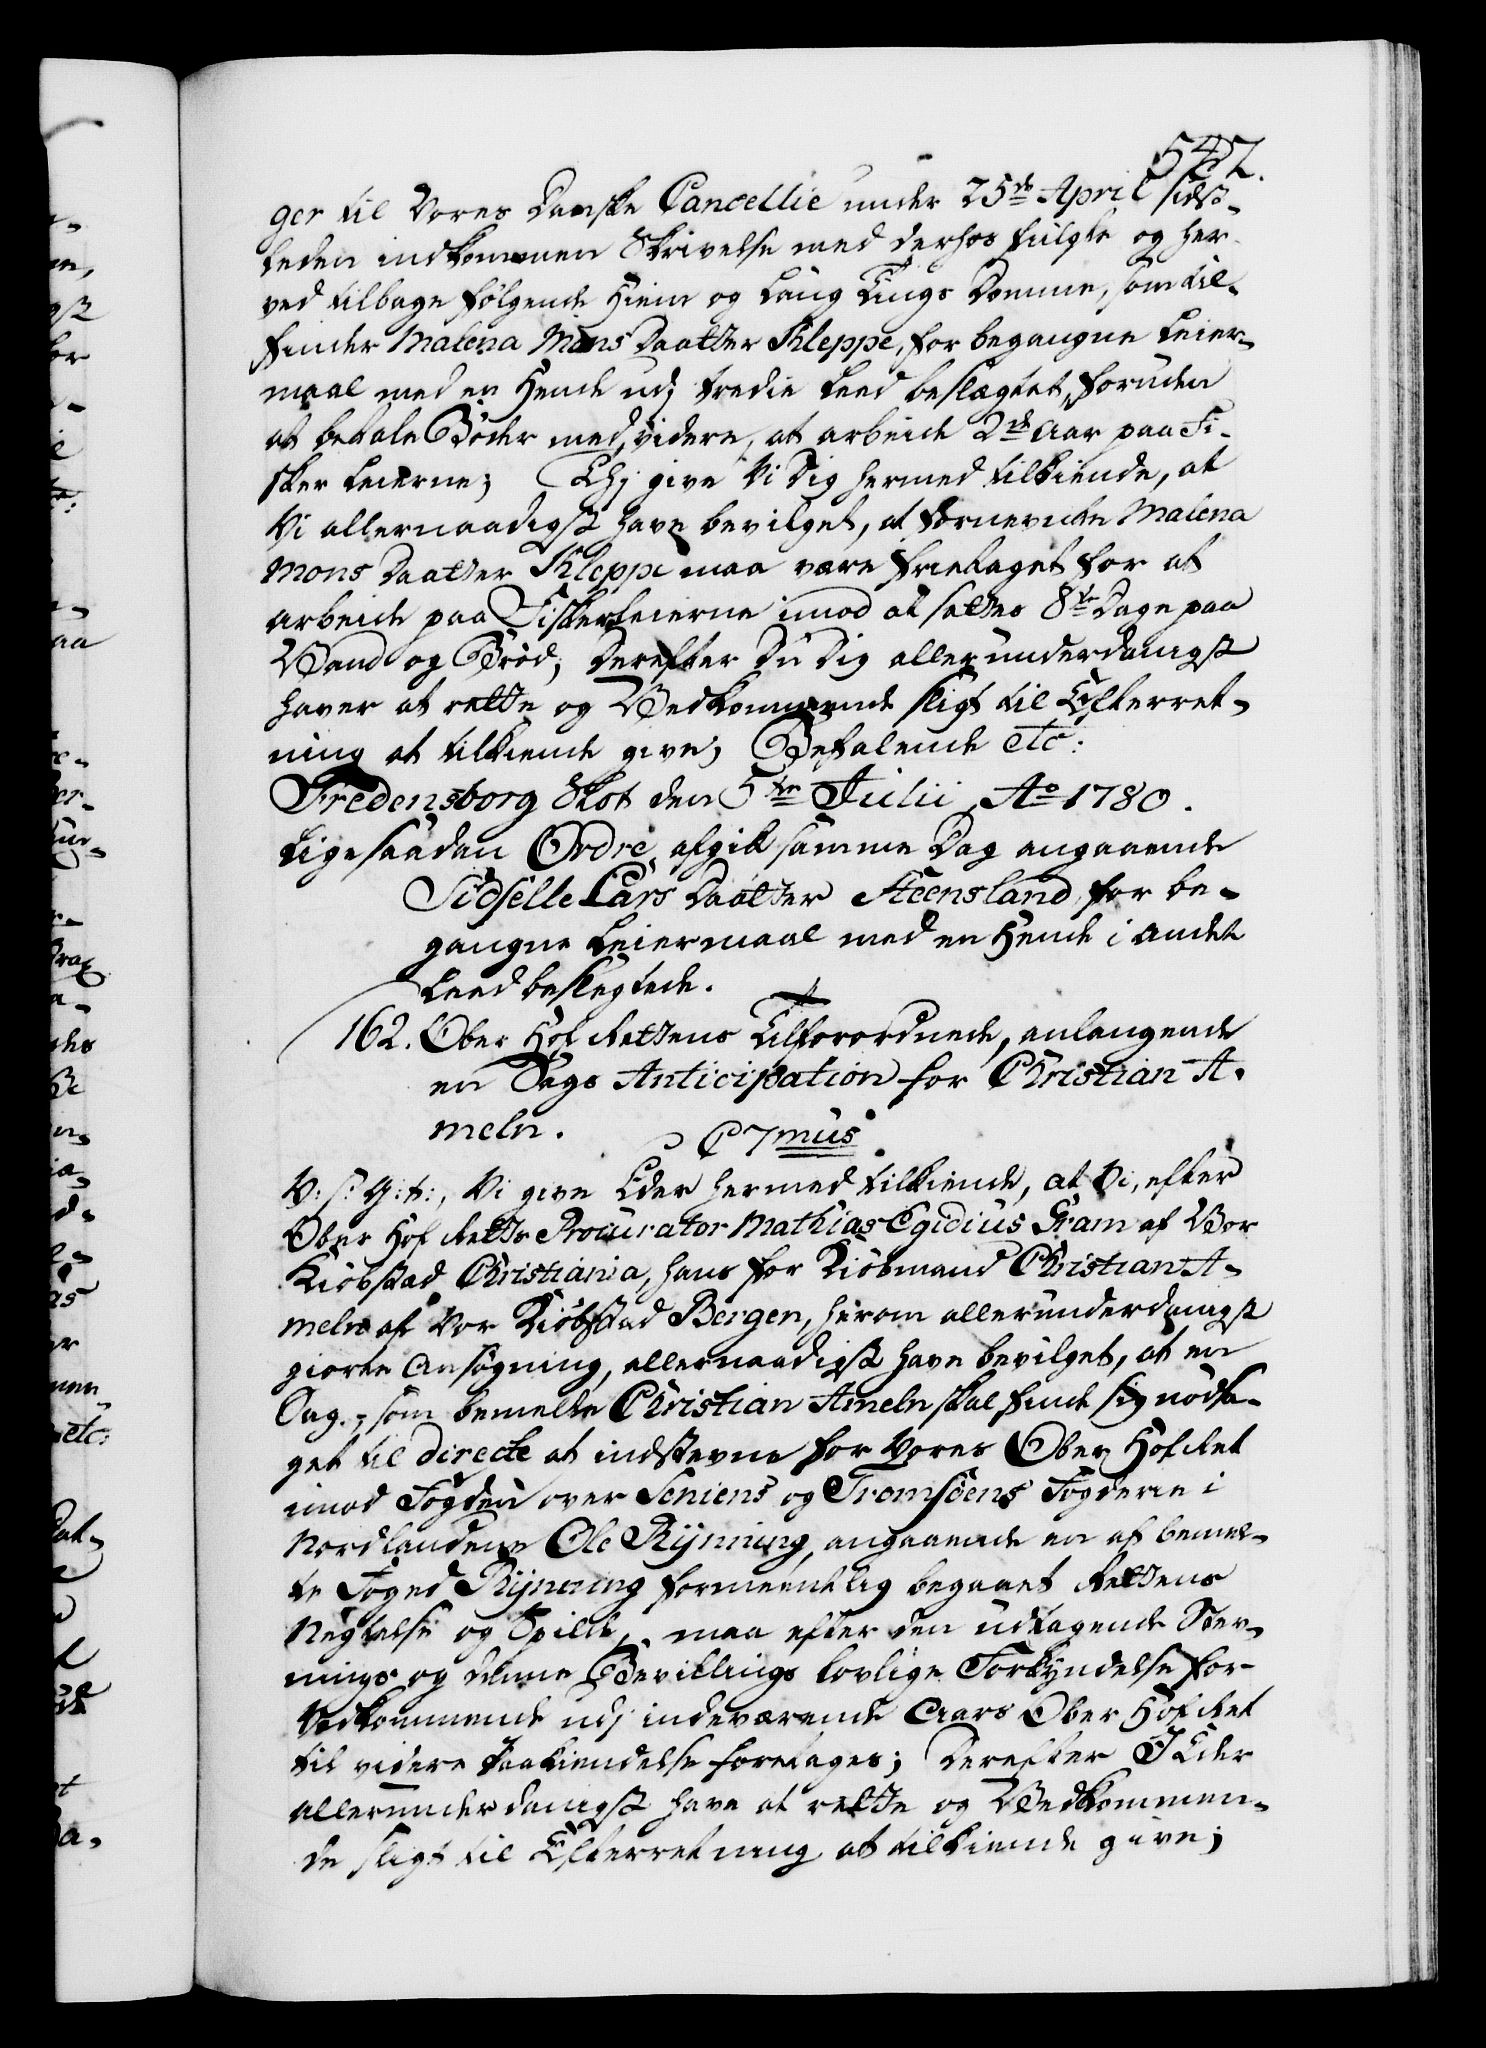 547.
ger til Vores Danske Cancellie under 25de April sidst-
leden indkommen Skrivelse med derhos fulgte og her-
ved tilbage følgende Hiem og Laug Tings Domme, som til-
finder Malena Mons Daatter Kleppe, for begangne Leier-
maal med en hende udj tredie Leed beslægtet, foruden
at betale Bøder med videre, at arbeide 2de Aar paa Fi-
sker Leierne; Thj give Vi Dig hermed tilkiende, at
Vi allernaadigst have bevilget, at fornevnte Malena
Mons Daatter Kleppe maa være frietaget for at
arbeide paa Fiskerleierne imod at sættes 8te Dage paa
Vand og Brød; Derefter Du Dig allerunderdanigst
haver at rette og Vedkommende sligt til Efterret-
ning at tilkiende give; Befalende etc:
Fredensborg Slot den 5te Julii Ao 1780.
Ligesaadan Ordre afgik samme Dag angaaende
Sidselle Lars Daatter Steensland for be-
gangne Leiermaal med en hende i andet
Leed beslegtede.
162. Ober Hof Rettens Tilforordnede, anlangende
en Sags Anticipation for Christian A-
meln.
C 7mus
V: s: G: t:, Vi give Eder hermed tilkiende, at Vi, efter
Ober Hof Retts Procurator Mathias Egidius Kram af Vor
Kiøbstad Christiania, hans for Kiøbmand Christian A-
meln af Vor Kiøbstad Bergen, herom allerunderdanigst
giorte Ansøgning, allernaadigst have bevilget, at en
Sag, som bemelte Christian Ameln skal finde sig nødsa-
get til directe at indstevne for Vores Ober Hof Ret
imod Fogden over Seniens og Tromsøens Fogderie i
Nordlandene Ole Rijnning, angaaende en af bemel-
te Foged Rijnning formeentlig begaaet Rettens
Negtelse og Spilde, maa efter den udtagende Stev-
nings og denne Bevillings lovlige Forkyndelse for
Vedkommende udj indeværende Aars Ober Hof Ret
til videre Paakiendelse foretages; Derefter I Eder
allerunderdanigst have at rette og Vedkommen-
de sligt til Efterretning at tilkiende give;